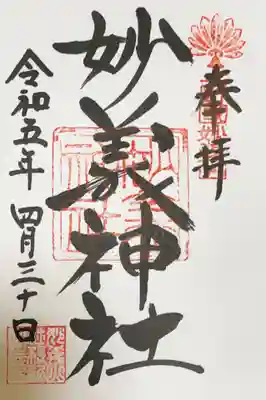 奉拝
妙義神社
令和五年 四月三十日